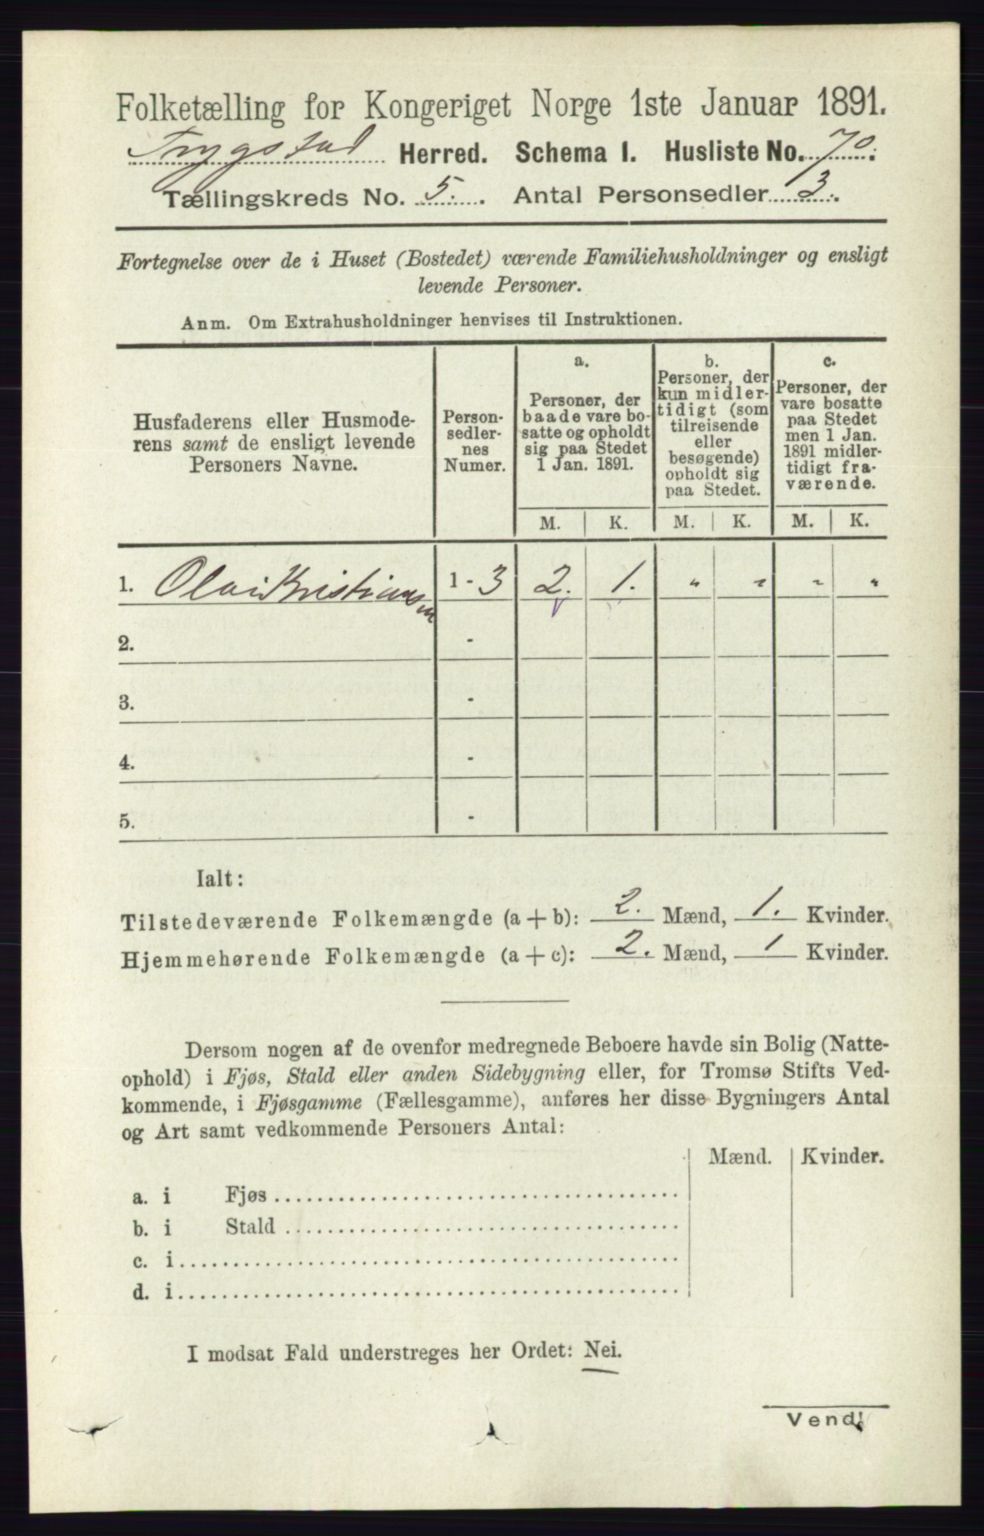 Folketælling for Kongeriget Norge 1ste Januar 1891.
Trygstad Herred. Schema I. Husliste No. 70.
Tællingskreds No. 5. Antal Personsedler 3.
Fortegnelse over de i Huset (Bostedet) værende Familiehusholdninger og ensligt
levende Personer.
Anm. Om Extrahusholdninger henvises til Instruktionen.
Husfaderens eller Husmode-
rens samt de ensligt levende
Personers Navne.
Person-
sedler-
nes
Numer.
a.
Personer, der
baade vare bo-
satte og opholdt
sig paa Stedet
1 Jan. 1891.
b.
Personer, der
kun midler-
tidigt (som
tilreisende
eller
besøgende)
opholdt sig
paa Stedet.
c.
Personer, der
vare bosatte
paa Stedet
men 1 Jan.
1891 midler-
tidigt fra-
værende.
M. K. M. K. M. K.
1. Olai Kristiansen 1 - 3 2. 1. " " " "
2. -
3. -
4. -
5. -
Ialt:
Tilstedeværende Folkemængde (a + b): 2. Mænd, 1. Kvinder.
Hjemmehørende Folkemængde (a + c): 2. Mænd, 1 Kvinder.
Dersom nogen af de ovenfor medregnede Beboere havde sin Bolig (Natte-
ophold) i Fjøs, Stald eller anden Sidebygning eller, for Tromsø Stifts Ved-
kommende, i Fjøsgamme (Fællesgamme), anføres her disse Bygningers Antal
og Art samt vedkommende Personers Antal:
Mænd. Kvinder.
a. i Fjøs
b. i Stald
c. i
d. i
I modsat Fald understreges her Ordet: Nei.
Vend!